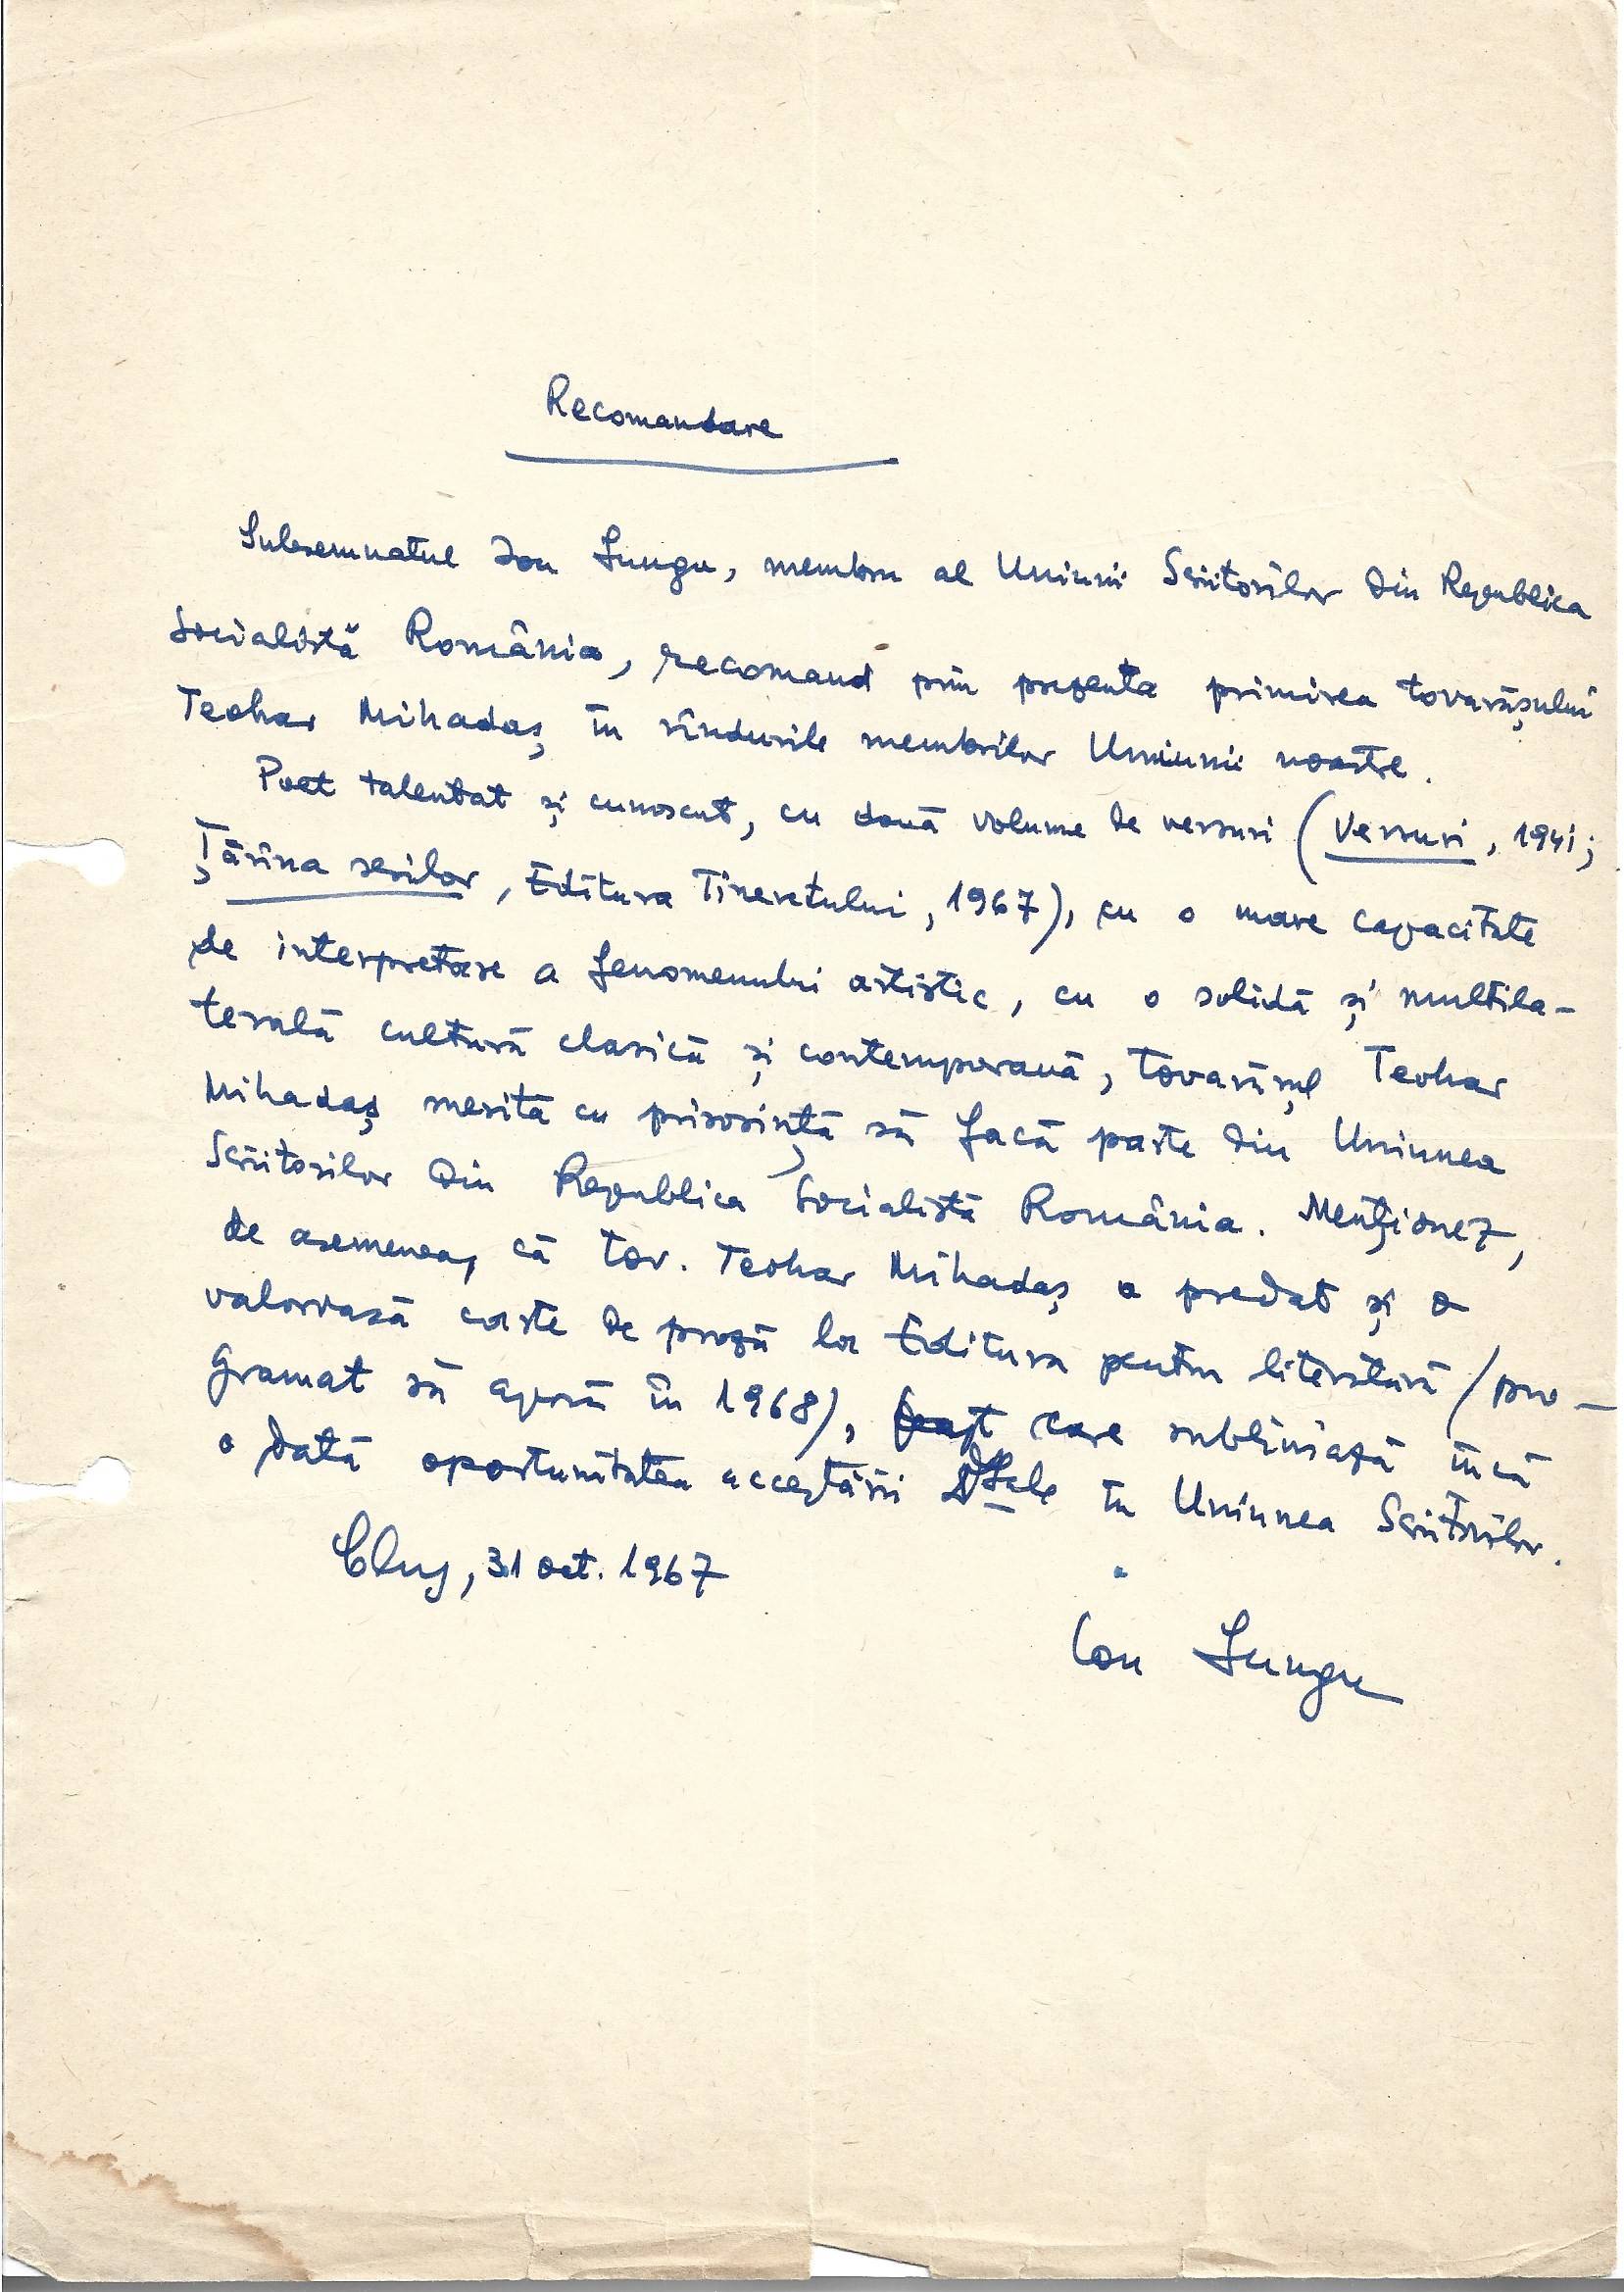 Recomandare
Subsemnatul Ion Lungu, membru al Uniunii Scriitorilor din Republica
Socialistă România, recomand prin prezenta primirea tovarășului
Teohar Mihadaș în rîndurile membrilor Uniunii noastre.
Poet talentat și cunoscut, cu două volume de versuri (Versuri, 1941;
Țărîna serilor, Editura Tineretului, 1967), cu o mare capacitate
de interpretare a fenomenului artistic, cu o solidă și multila-
terală cultură clasică și contemporană, tovarășul Teohar
Mihadaș merită cu prisosință să facă parte din Uniunea
Scriitorilor din Republica Socialistă România. Menționez,
de asemenea, că tov. Teohar Mihadaș a predat și o
valoroasă carte de proză la Editura pentru literatură (pro-
gramat să apară în 1968), fapt care subliniază încă
o dată oportunitatea acceptării D-Sale în Uniunea Scriitorilor.
Cluj, 31 oct. 1967
Ion Lungu